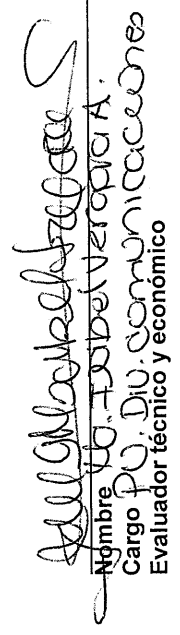 Nombre Ma. Isabel Vergara A.
Cargo PU. Div. comunicaciones
Evaluador técnico y económico